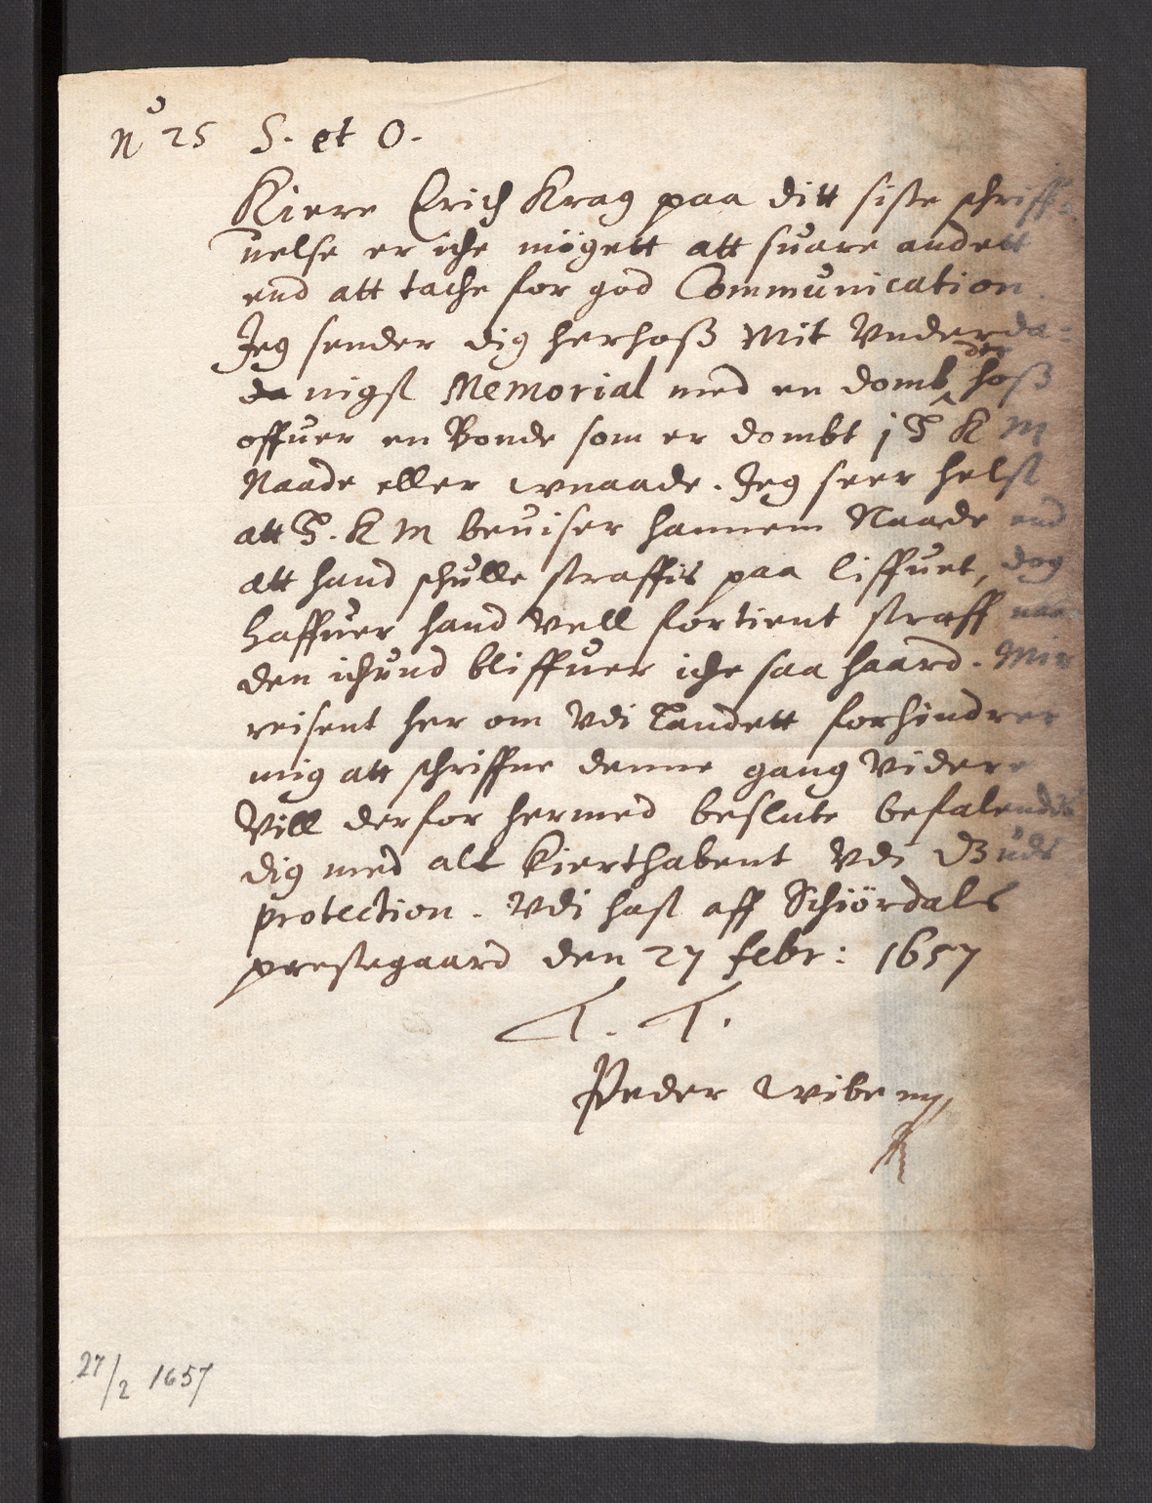 No 25 S. et O.
Kiere Erich Krag paa ditt siste schriff-
uelse er iche mögett att suare andett
end att tache for god Communication.
Jeg sender dig herhoß Mit Vnderda-
nigst Memorial med en domb der hoß
offuer en Bonde som er dombt j H K M
Naade eller wnaade. Jeg seer helst
att H. K M beuiser hannem Naade end
att hand schulle straffis paa liffuet, dog
haffuer hand vell fortient straff naar
den ichund bliffuer iche saa haard. Min
reisent her om Vdi Landett forhindrer
mig att schriffue denne gang videre
Vill derfor hermed beslute befalendis
dig med alt kierthabent Vdi Guds
protection. Vdi hast aff Schiördals
prestegaard den 27 febr: 1657
T. T.
Peder Wibe
27/2 1657